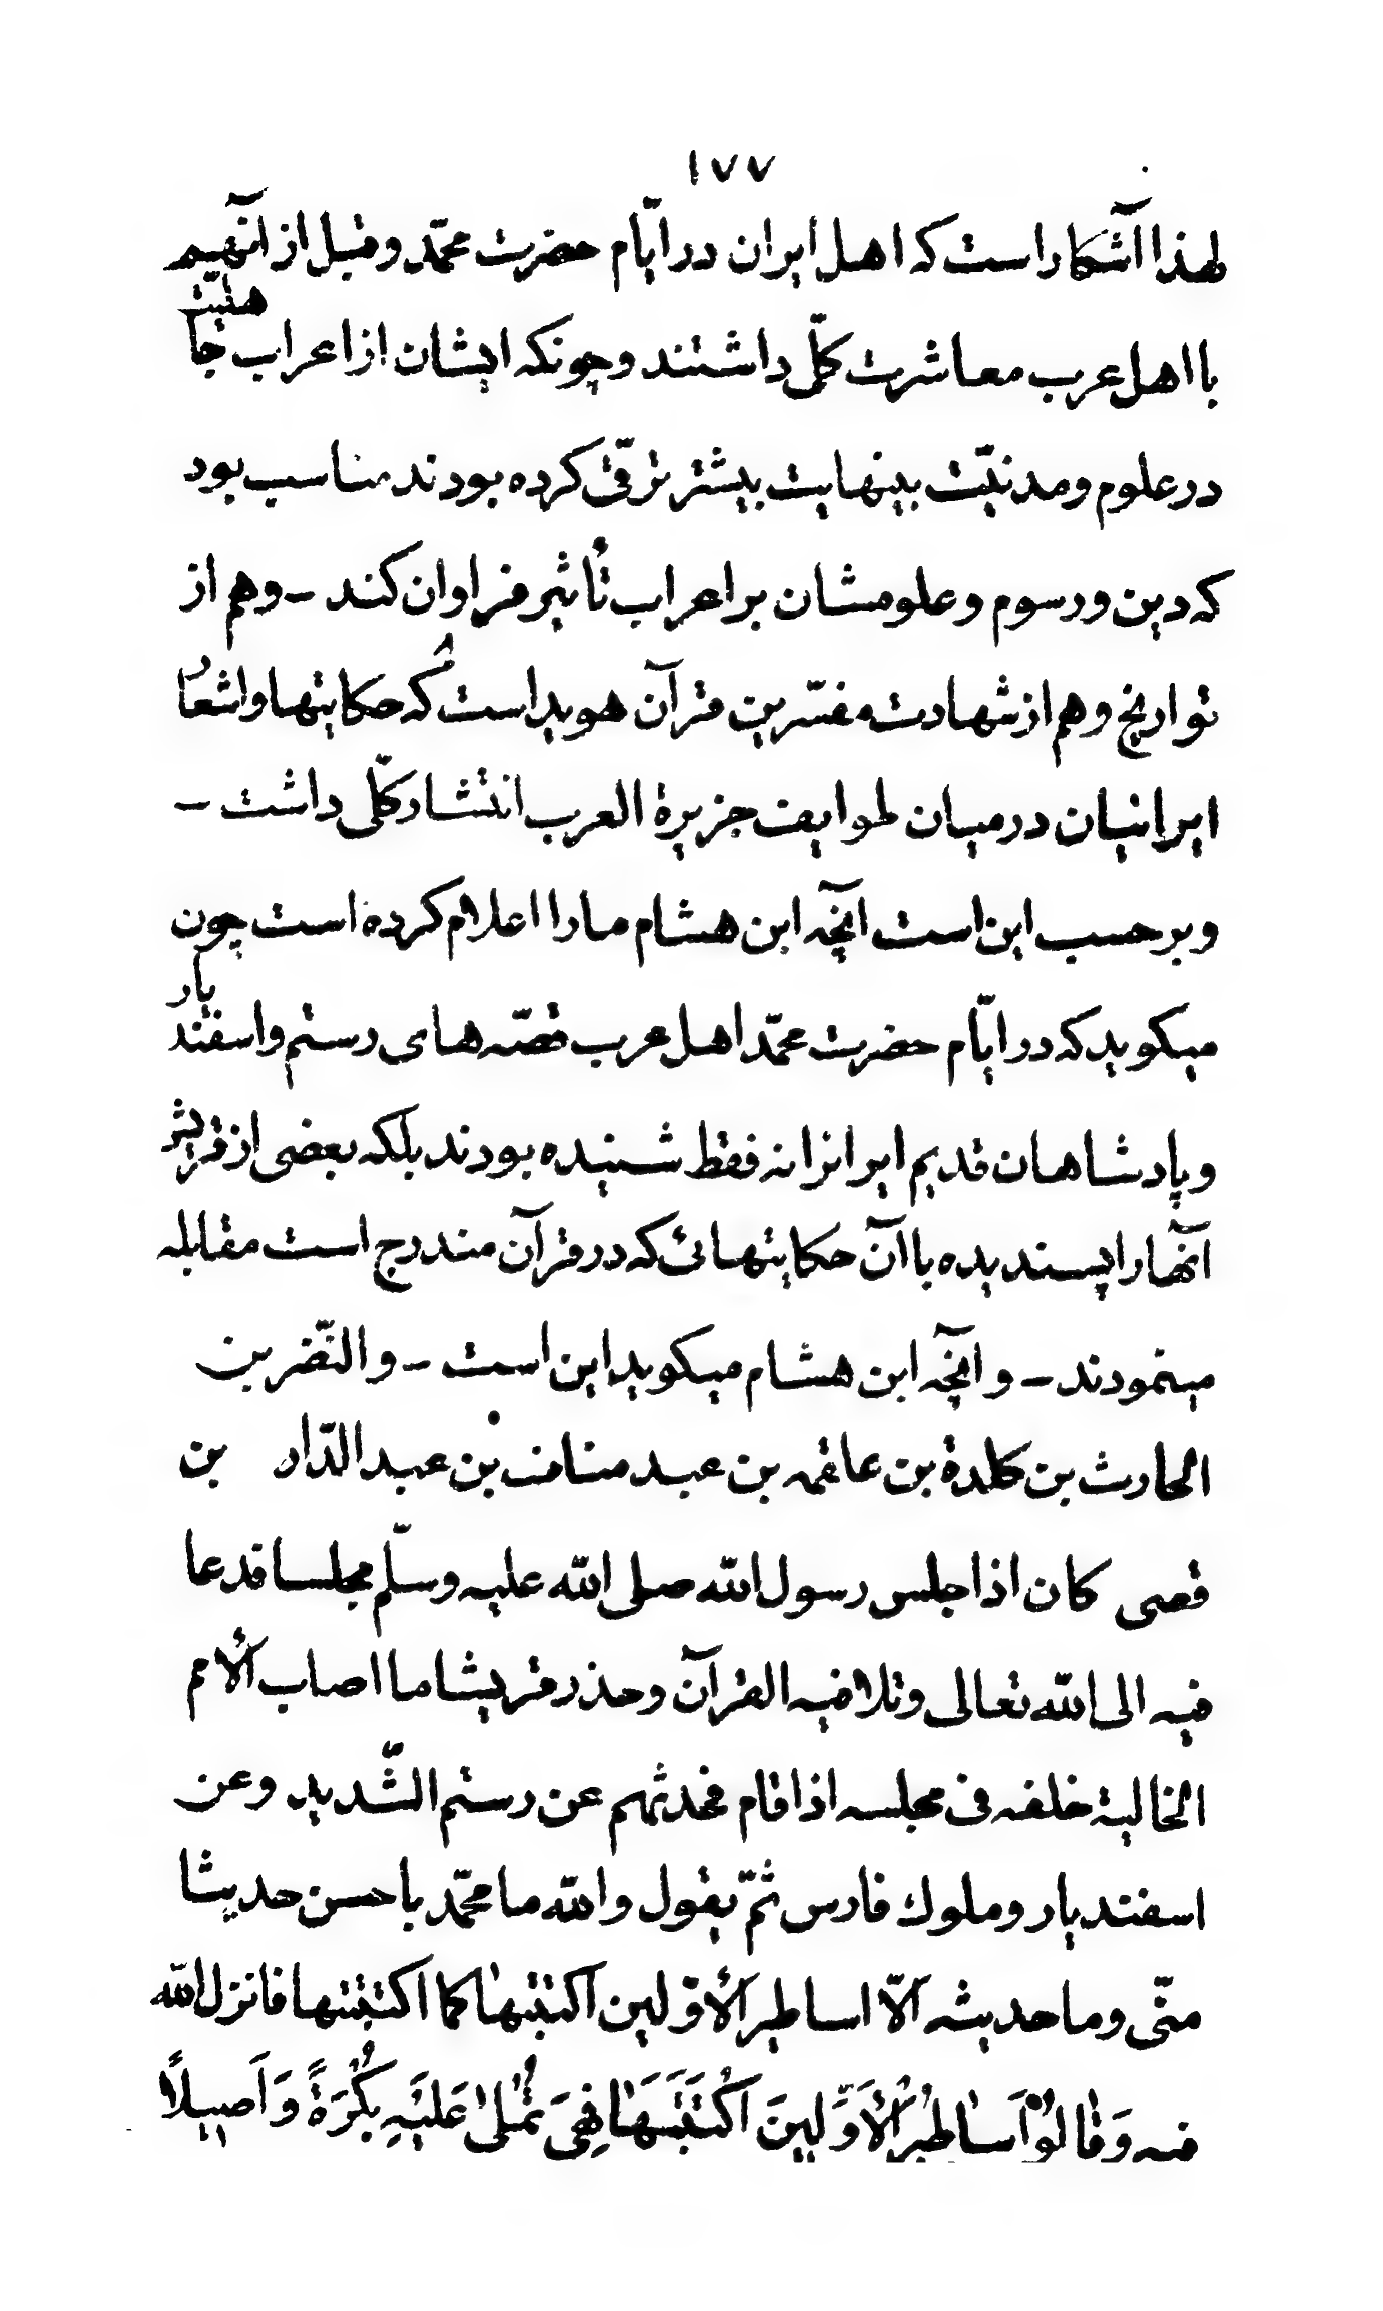 ۱۷۷
لهذا آشکار است که اهل ایران در ایّام حضرت محمّد و قبل از آنهم
با اهل عرب معاشرت کلّی داشتند و چونکه ایشان از اعراب جاهلیّت
در علوم و مدنیّت بینهایت بیشتر ترقّی کرده بودند مناسب بود
که دین و رسوم و علومشان بر اعراب تأثیر فراوان کند – و هم از
تواریخ و هم از شهادت مفسّرین قرآن هویداست که حکایتها و اشعار
ایرانیان در میان طوایف جزیرة العرب انتشار کلّی داشت –
و بر حسب این است آنچه ابن هشام ما را اعلام کرده است چون
میکوید که در ایّام حضرت محمّد اهل عرب قصّه های رستم و اسفندیار
و پادشاهان قدیم ایرانرا نه فقط شنیده بودند بلکه بعضی از قریش
آنها را پسندیده با آن حکایتهائی که در قرآن مندرج است مقابله
مینمودند – و آنچه ابن هشام میکوید این است – والنّضر بن
الحارث بن کلدة بن عاقمه بن عبد مناف بن عبد الدّار بن
قصی کان اذا جلس رسول الله صلی الله علیه وسلّم مجلسا فدعا
فیه الی الله تعالی وتلا فیه القرآن وحذر قریشا ما اصاب الأمم
الخالیة خلفه فی مجلسه اذا قام فحدثهم عن رستم الشّدید وعن
اسفندیار وملوك فارس ثمّ یقول والله ما محمّد باحسن حدیثا
منّی وما حدیثه الّا اساطیر الأوّلین اکتتبها کما اکتتبتها فانزل الله
فیه وَقَالُوْا اَسَاطِيْرُ الْأَوَّلِينَ اكْتَتَبَهَا فَهِىَ تُمْلىٰ عَلَيْهِ بُكْرَةً وَاَصِيلاً